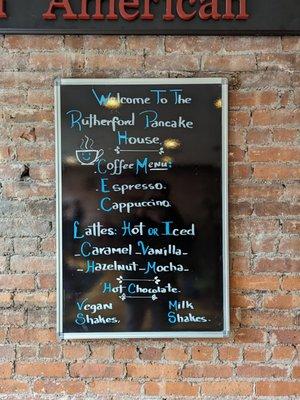 American
Welcome To The
Rutherford Pancake
House
Coffee Menu:
Espresso.
Cappuccino.
Lattes: Hot or Iced
Caramel - Vanilla -
Hazelnut - Mocha -
Hot Chocolate.
Vegan Shakes.
Milk Shakes.